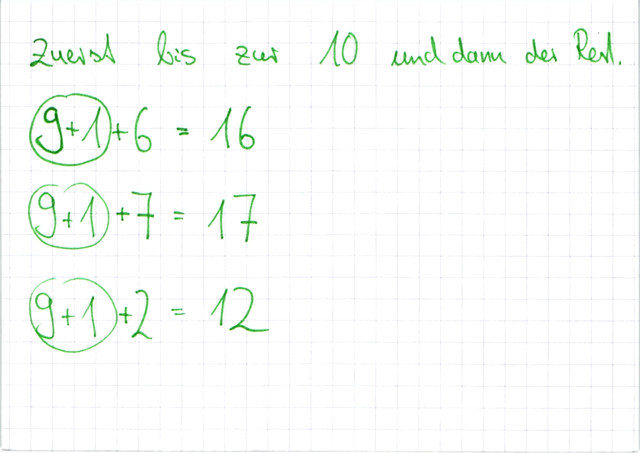 Zuerst bis zur 10 und dann der Rest.
9+1+6 = 16
9+1+7 = 17
9+1+2 = 12